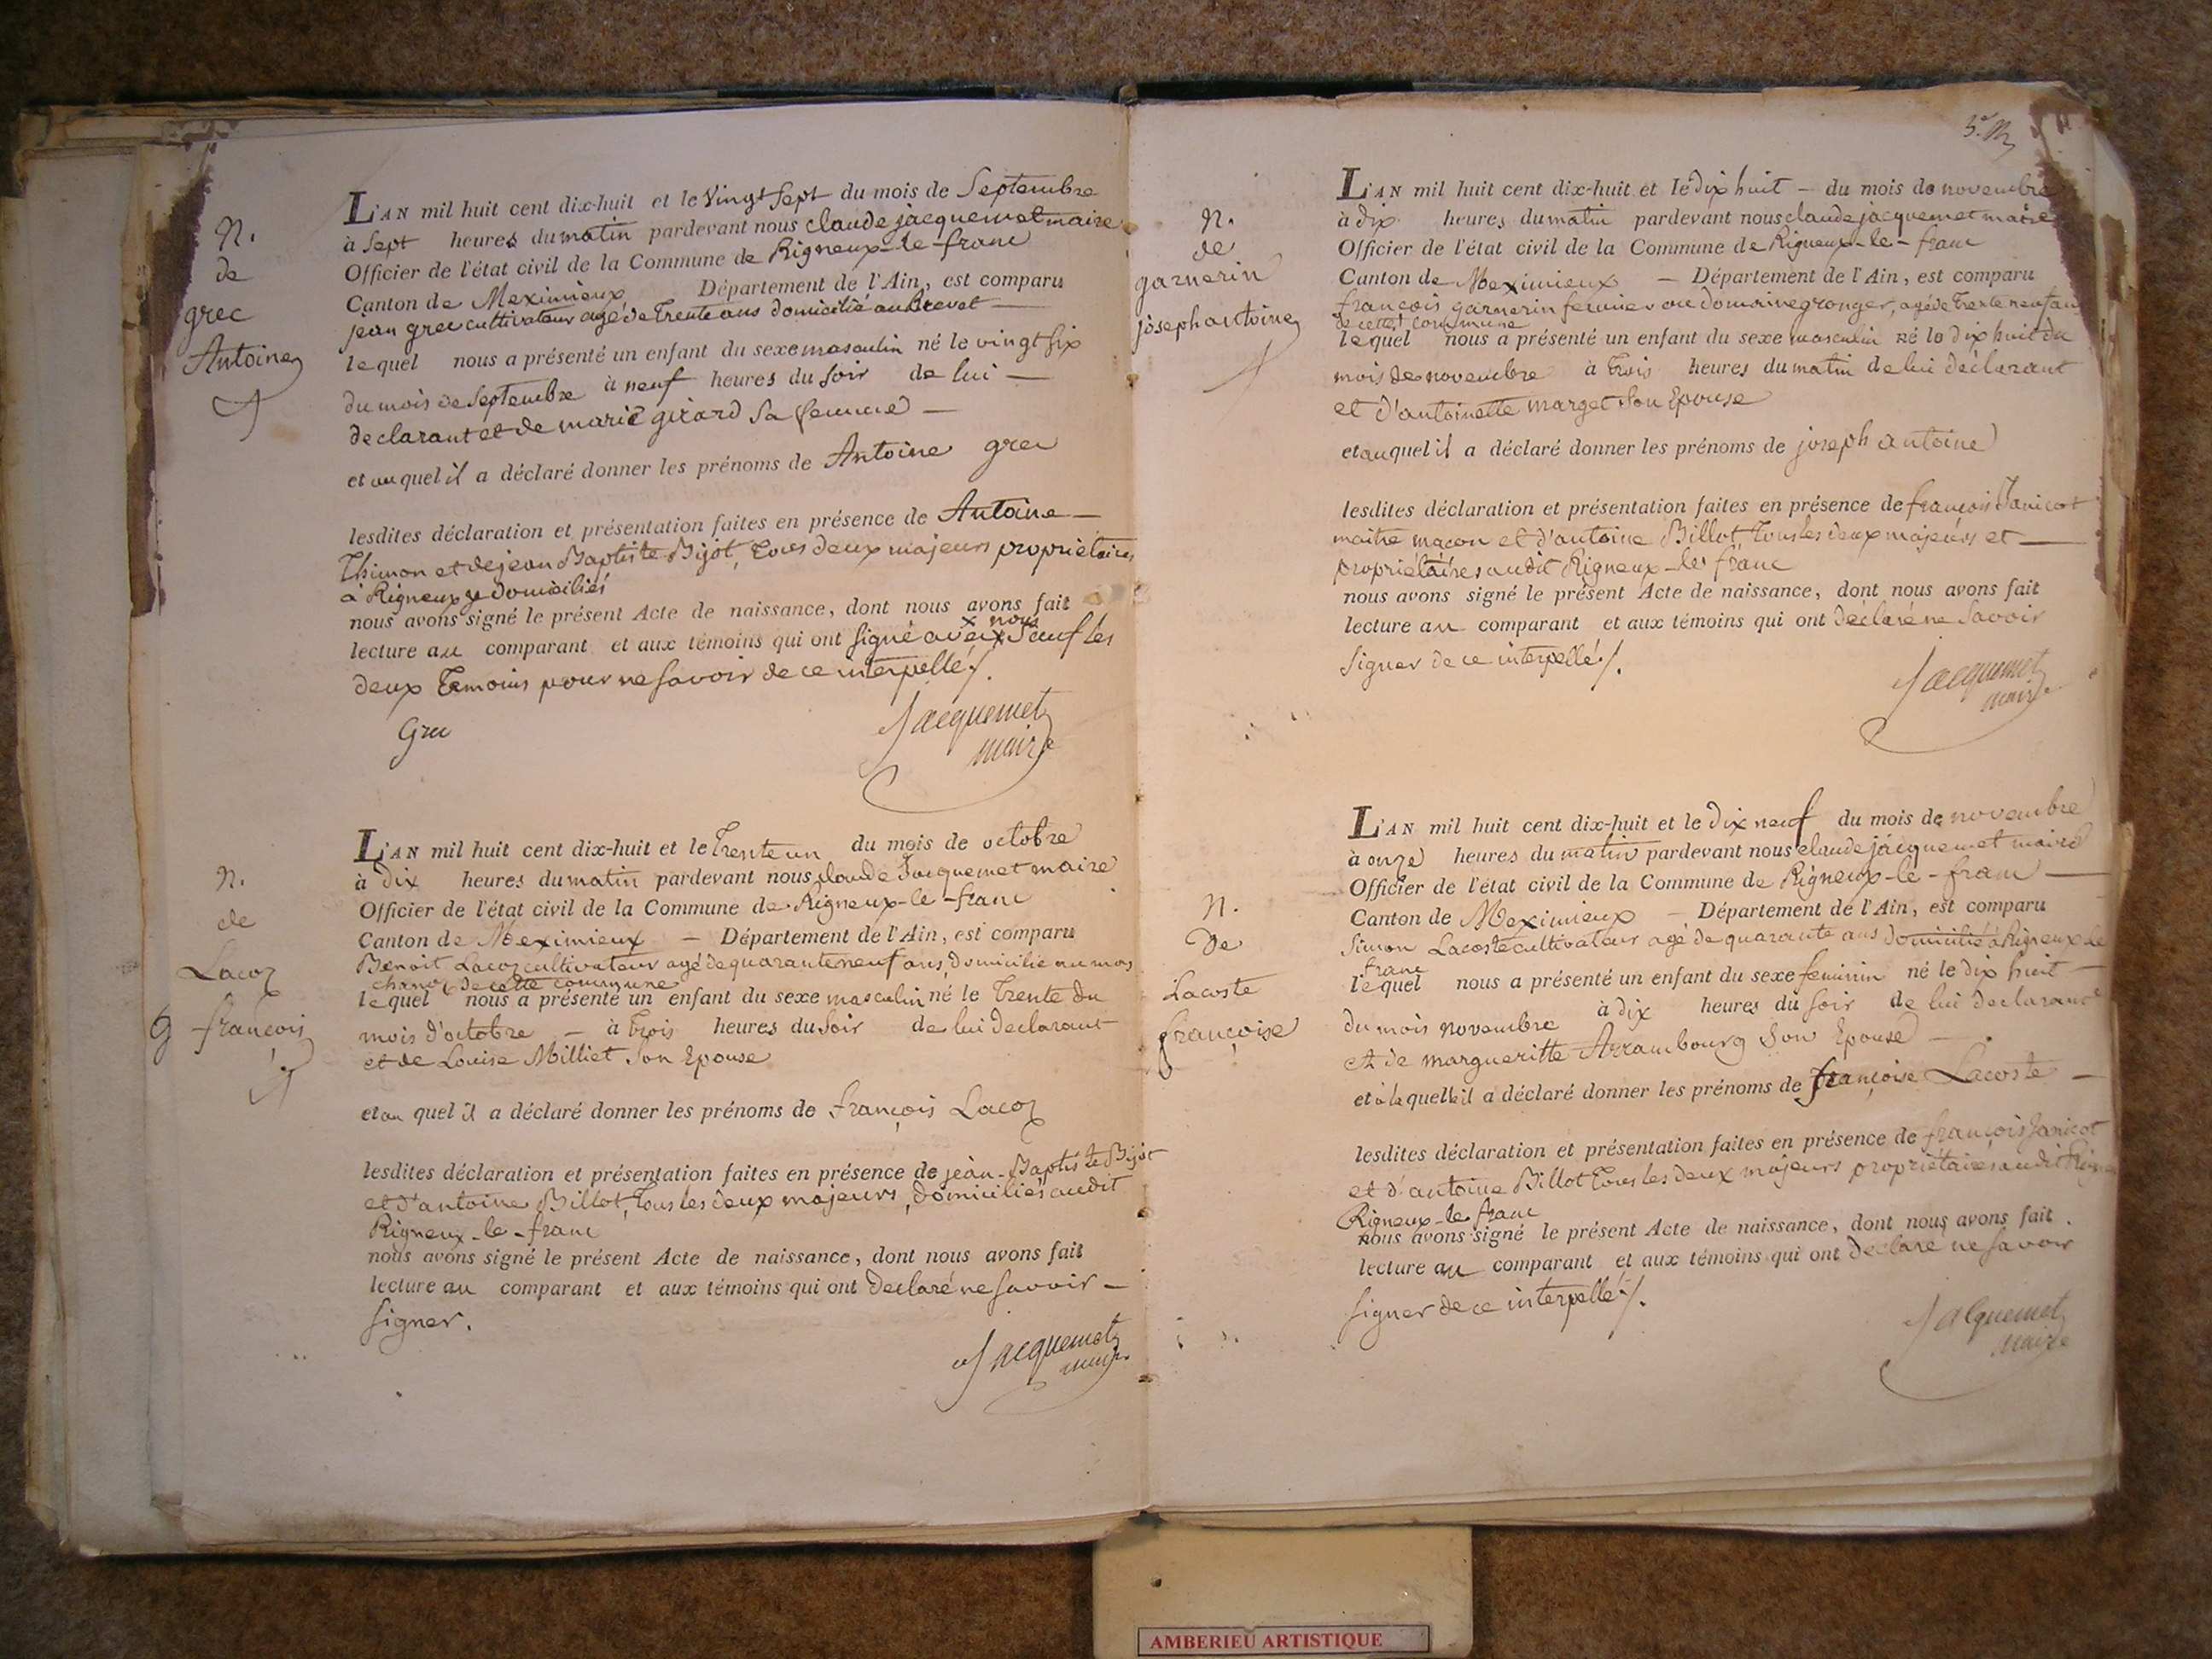 N.
de
grec
Antoine
L'AN mil huit cent dix-huit et le vingt sept du mois de Septembre
à sept heures du matin pardevant nous claude jacquemet maire
Officier de l'état civil de la Commune de Rigneux-le-franc
Canton de Meximieux Département de l'Ain, est comparu
jean grec cultivateur agé de trente ans domicilié au Brevet
lequel nous a présenté un enfant du sexe masculin né le vingt six
du mois de Septembre à neuf heures du soir de lui —
declarant et de marie girard sa femme —
et auquel il a déclaré donner les prénoms de Antoine grec
lesdites déclaration et présentation faites en présence de Antoine —
Thimon et de jean Baptiste Bijot, tous deux majeurs proprietaires
à Rigneux y domiciliés
nous avons signé le présent Acte de naissance, dont nous avons fait
x nous
lecture au comparant et aux témoins qui ont signé avec x Sauf les
deux temoins pour ne savoir de ce interpellé ./.
Grec
Jacquemet
maire
N.
de
Lacoz
9 françois
L'AN mil huit cent dix-huit et le trente un du mois de octobre
à dix heures du matin pardevant nous claude Jacquemet maire
Officier de l'état civil de la Commune de Rigneux-le-franc
Canton de Meximieux — Département de l'Ain, est comparu
Benoit Lacoz cultivateur agé de quarante neuf ans, domicilié au mas
de cette commune
lequel nous a présenté un enfant du sexe masculin né le trente du
mois d'octobre — à trois heures du soir de lui declarant
et de Louise Milliet son Epouse
et au quel il a déclaré donner les prénoms de françois Lacoz
lesdites déclaration et présentation faites en présence de jean-Baptiste Bijot
et d'antoine Billot, tous les deux majeurs, domiciliés audit
Rigneux-le-franc
nous avons signé le présent Acte de naissance, dont nous avons fait
lecture au comparant et aux témoins qui ont declaré ne savoir —
signer.
Jacquemet
maire
N.
de
garnerin
joseph antoine
L'AN mil huit cent dix-huit et le dix huit — du mois de novembre
à dix heures du matin pardevant nous claude jacquemet maire
Officier de l'état civil de la Commune de Rigneux-le-franc
Canton de Meximieux — Département de l'Ain, est comparu
françois garnerin fermier au domaine granger, agé de trente neuf ans
de cette commune
lequel nous a présenté un enfant du sexe masculin né le dix huit du
mois de novembre à trois heures du matin de lui déclarant
et d'antoinette marget son Epouse
et auquel il a déclaré donner les prénoms de joseph antoine
lesdites déclaration et présentation faites en présence de françois Janicot
maitre maçon et d'antoine Billot tous les deux majeurs et —
propriétaires audit Rigneux-le-franc
nous avons signé le présent Acte de naissance, dont nous avons fait
lecture au comparant et aux témoins qui ont déclaré ne savoir
signer de ce interpellé ./.
Jacquemet
maire
N.
De
Lacoste
françoise
L'AN mil huit cent dix-huit et le dix neuf du mois de novembre
à onze heures du matin pardevant nous claude jacquemet maire
Officier de l'état civil de la Commune de Rigneux-le-franc —
Canton de Meximieux — Département de l'Ain, est comparu
Simon Lacoste cultivateur agé de quarante ans domicilié à Rigneux le
franc
lequel nous a présenté un enfant du sexe feminin né le dix huit —
du mois novembre à dix heures du soir de lui declarant
et de margueritte Arrambourg Son Epouse —
et à laquelle il a déclaré donner les prénoms de françoise Lacoste —
lesdites déclaration et présentation faites en présence de françois Janicot
et d'antoine Billot tous les deux majeurs propriétaires audit
Rigneux-le-franc
nous avons signé le présent Acte de naissance, dont nous avons fait
lecture au comparant et aux témoins qui ont declaré ne savoir
signer de ce interpellé ./.
Jacquemet
maire
AMBERIEU ARTISTIQUE